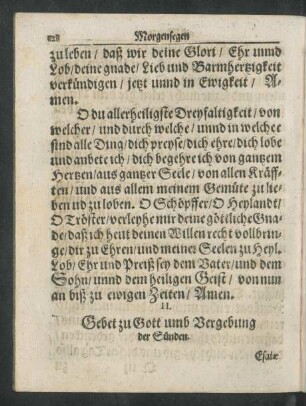 828 Morgensegen
zu leben / daß wir deine Glori / Ehr unnd
Lob / deine gnade / Lieb und Barmhertzigkeit
verkündigen / jetzt unnd in Ewigkeit / A-
men.
O du allerheiligste Dreyfaltigkeit / von
welcher / und durch welche / unnd in welcher
sind alle Ding / dich preyse / dich ehre / dich lobe
und anbete ich / dich begehre ich von gantzem
Hertzen / aus gantzer Seele / von allen Kräff-
ten / und aus allem meinem Gemüte zu lie-
ben und zu loben. O Schöpffer / O Heylandt /
O Tröster / verleyhe mir deine götliche Gna-
de / daß ich heut deinen Willen recht vollbrin-
ge / dir zu Ehren / und meiner Seelen zu Heyl.
Lob / Ehr und Preiß sey dem Vater / und dem
Sohn / unnd dem heiligen Geist / von nun
an biß zu ewigen Zeiten / Amen.
II.
Gebet zu Gott umb Vergebung
der Sünden.